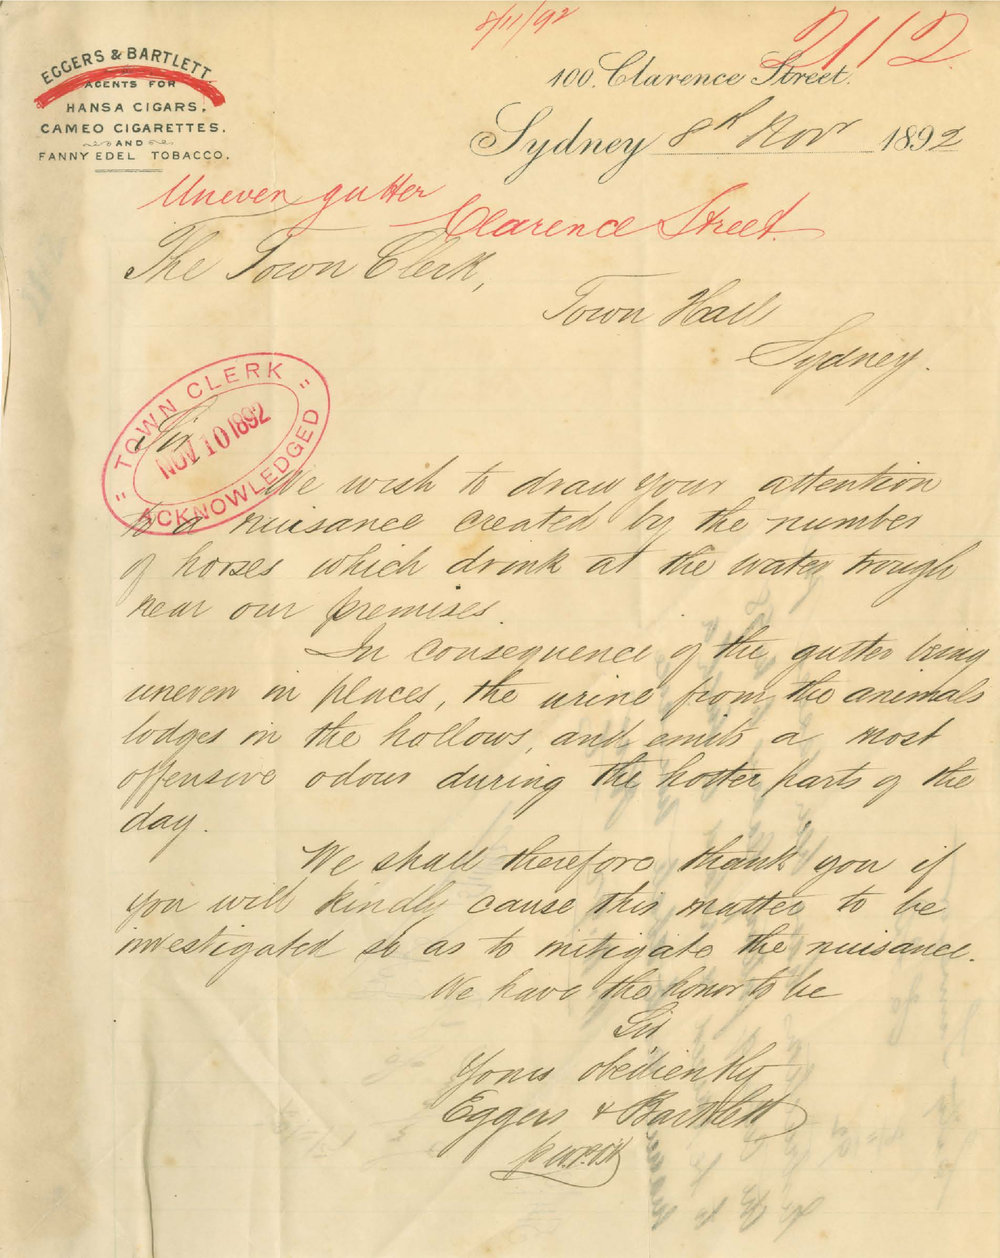 8/11/92
2112
EGGERS & BARTLETT
AGENTS FOR
HANSA CIGARS.
CAMEO CIGARETTES.
AND
FANNY EDEL TOBACCO.
100. Clarence Street.
Sydney 8th Novr 1892
Uneven gutter
Clarence Street
The Town Clerk,
Town Hall
Sydney.
TOWN CLERK
NOV 10 1892
ACKNOWLEDGED
Sir
We wish to draw your attention
to a nuisance created by the number
of horses which drink at the water trough
near our premises.
In consequence of the gutter being
uneven in places, the urine from the animals
lodges in the hollows, and emits a most
offensive odour during the hotter parts of the
day.
We shall therefore thank you if
you will kindly cause this matter to be
investigated so as to mitigate the nuisance.
We have the honor to be
Sir
Yours obediently
Eggers & Bartlett